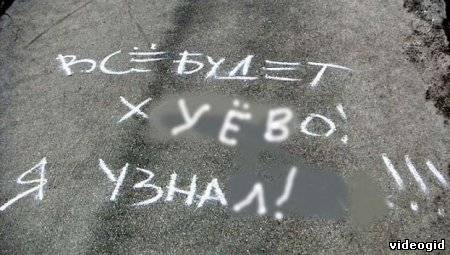 ВСЁ БУДЕТ
ХУЁВО!
Я УЗНАЛ! !!!
videogid